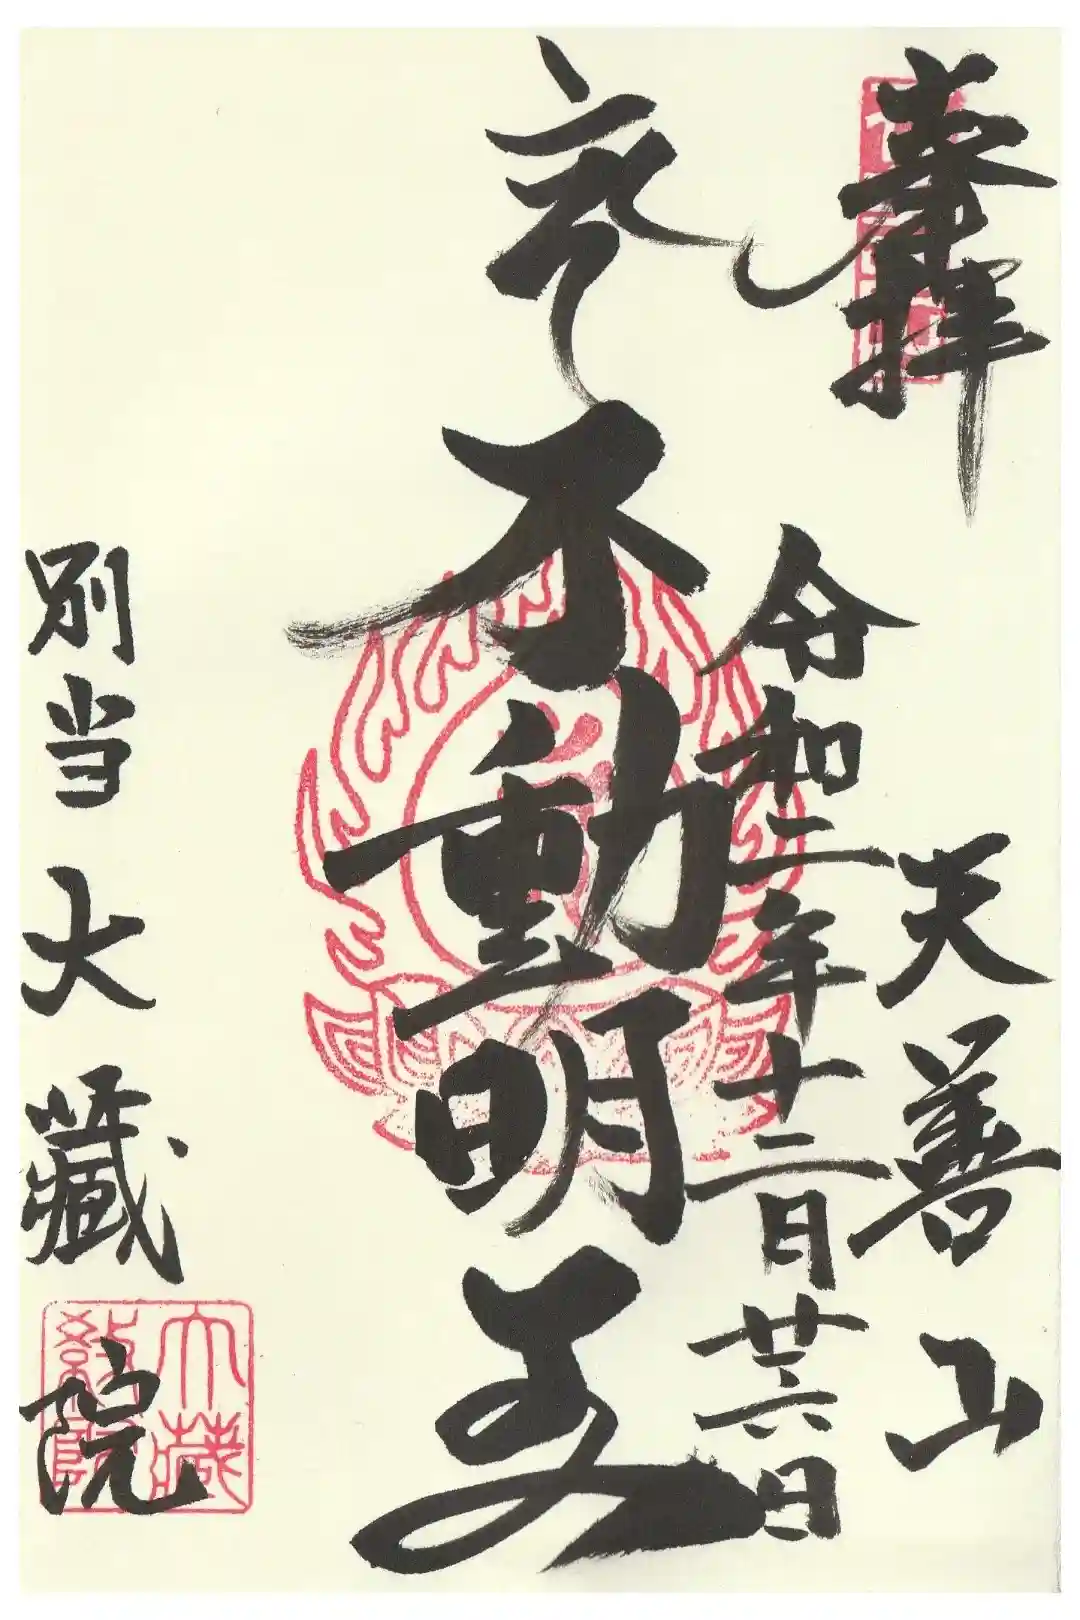 奉拝
天善山
令和二年十二月廿六日
不動明王
別当大蔵院